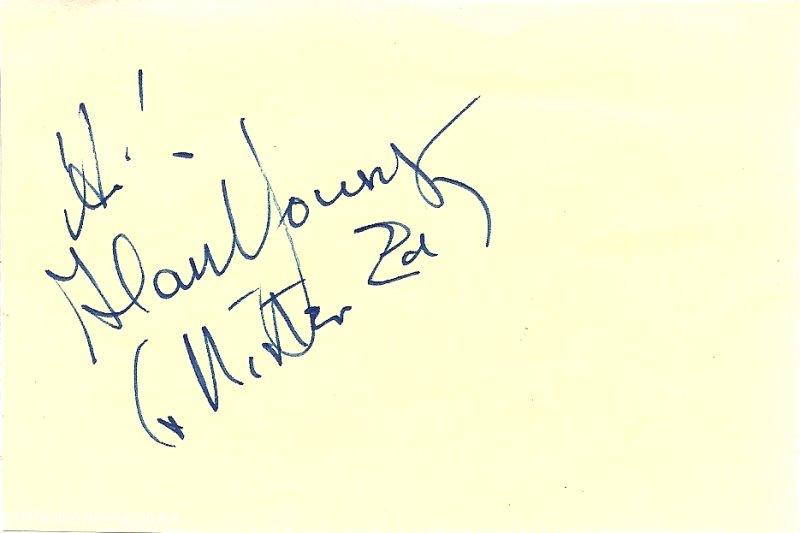 Hi! -
Alan Young
(& Mister Ed)